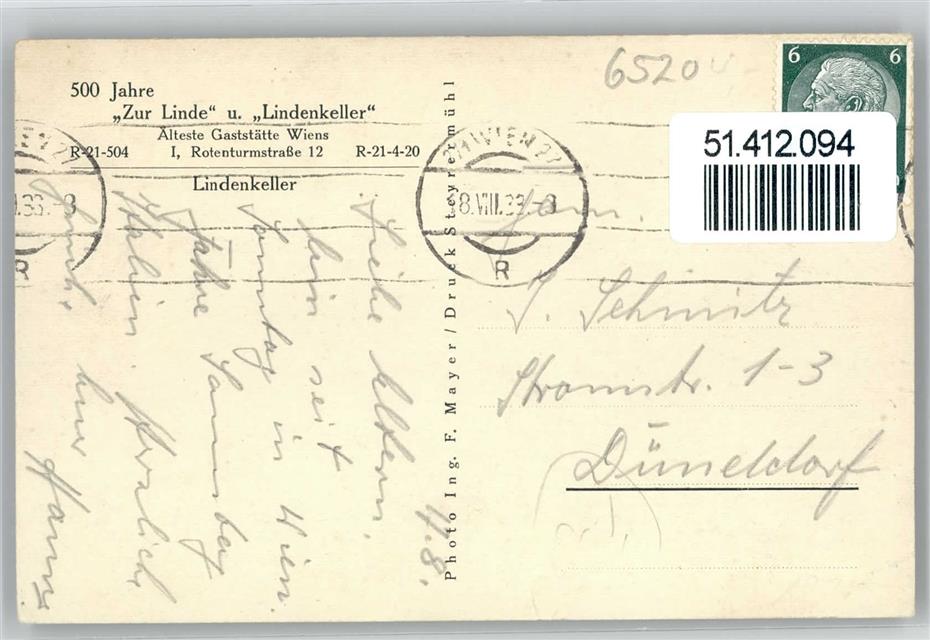 500 Jahre
„Zur Linde“ u. „Lindenkeller“
Älteste Gaststätte Wiens
R-21-504 I, Rotenturmstraße 12 R-21-4-20
Lindenkeller
Photo Ing. F. Mayer / Druck Steyrermühl
6520
6 6
51.412.094
WIEN
8.VIII.
R
R
Fam.
J. Schmitz
Stromstr. 1-3
Düsseldorf
4.8.
Liebe Eltern.
bin seit
Sonntag in Wien.
Fahre Samstag
Herzlich
Hans